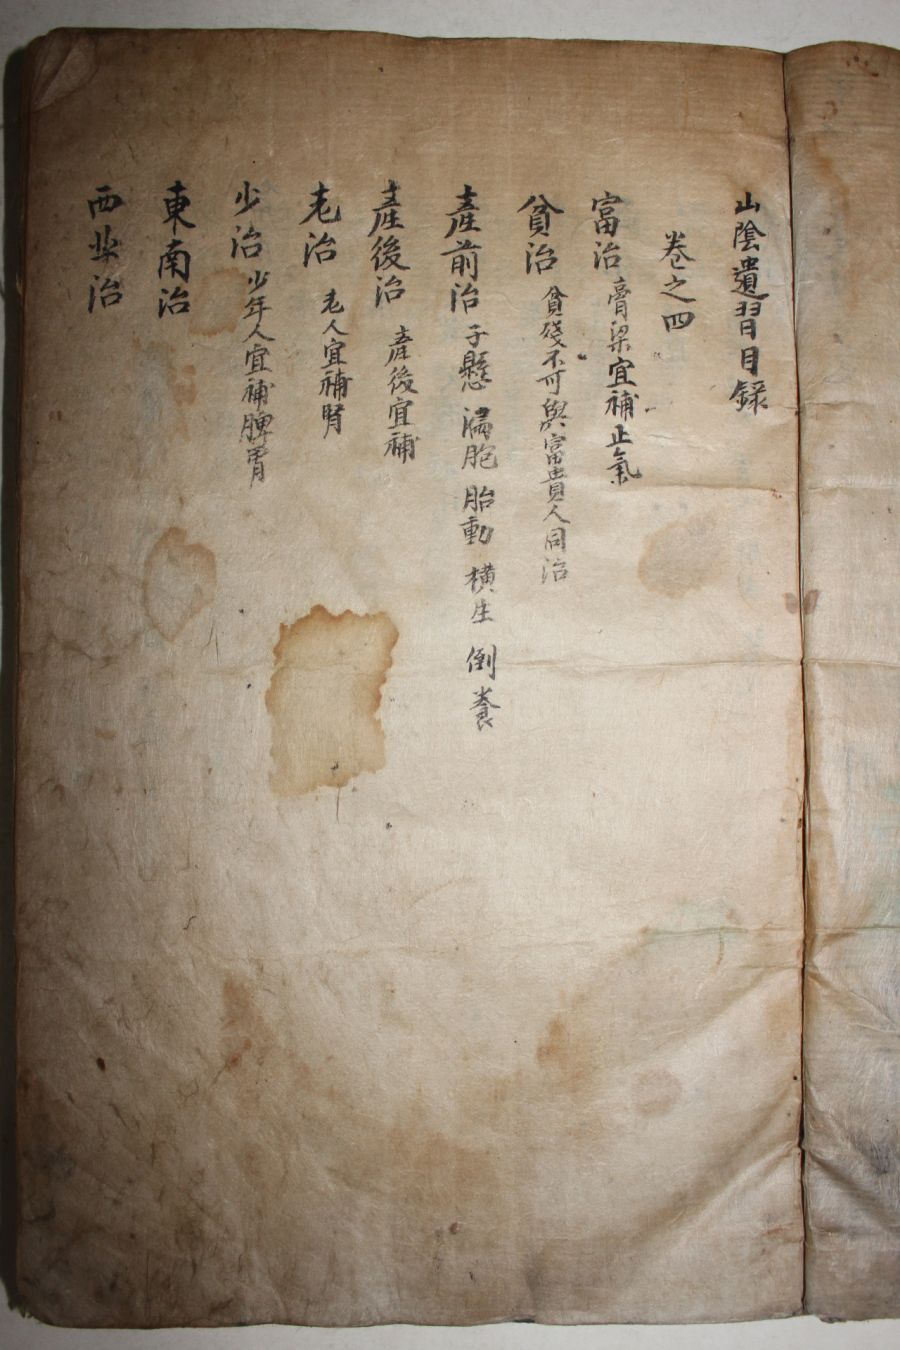 山陰遺習目録
卷之四
富治 膏梁宜補正氣
貧治 貧残不可與富貴人同治
產前治 子懸 漏胞 胎動 橫生 倒養
產後治 產後宜補
老治 老人宜補腎
少治 少年人宜補脾胃
東南治
西北治